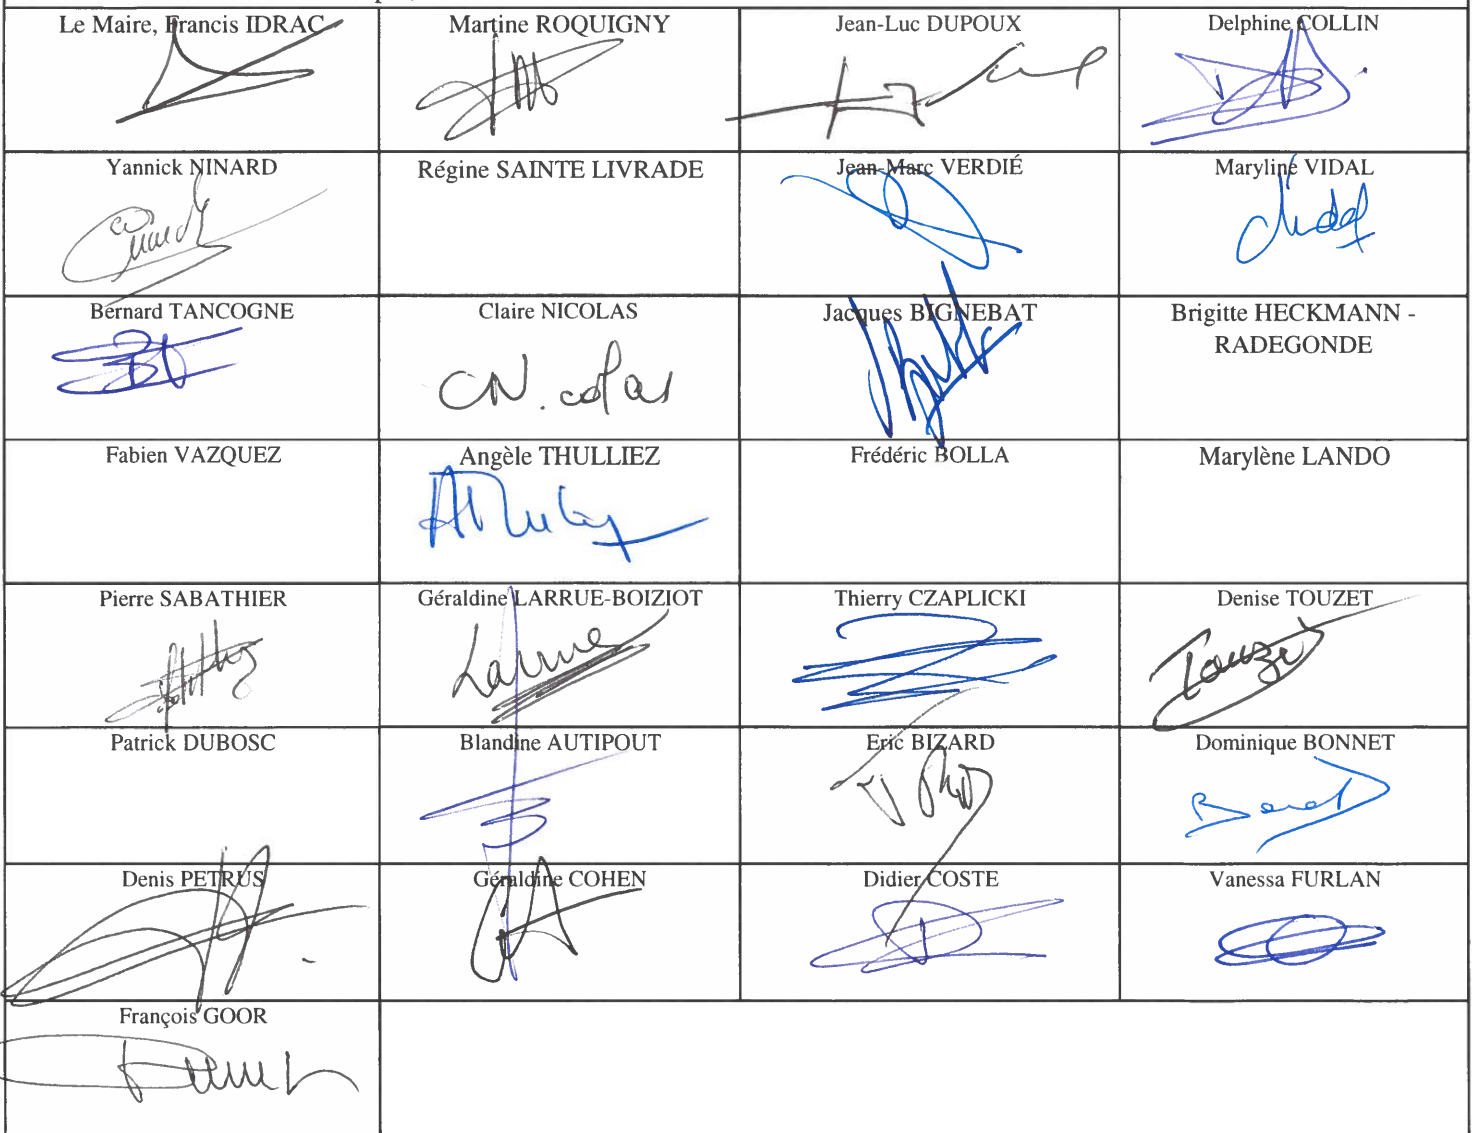 Le Maire, Francis IDRAC
Martine ROQUIGNY
Jean-Luc DUPOUX
Delphine COLLIN
Yannick NINARD
Régine SAINTE LIVRADE
Jean-Marc VERDIÉ
Maryline VIDAL
Vidal
Bernard TANCOGNE
Claire NICOLAS
CN.colas
Jacques BIGNEBAT
Brigitte HECKMANN -
RADEGONDE
Fabien VAZQUEZ
Angèle THULLIEZ
Frédéric BOLLA
Marylène LANDO
Pierre SABATHIER
Géraldine LARRUE-BOIZIOT
Larrue
Thierry CZAPLICKI
Denise TOUZET
Touzet
Patrick DUBOSC
Blandine AUTIPOUT
Eric BIZARD
Dominique BONNET
Denis PETRUS
Géraldine COHEN
Didier COSTE
Vanessa FURLAN
François GOOR